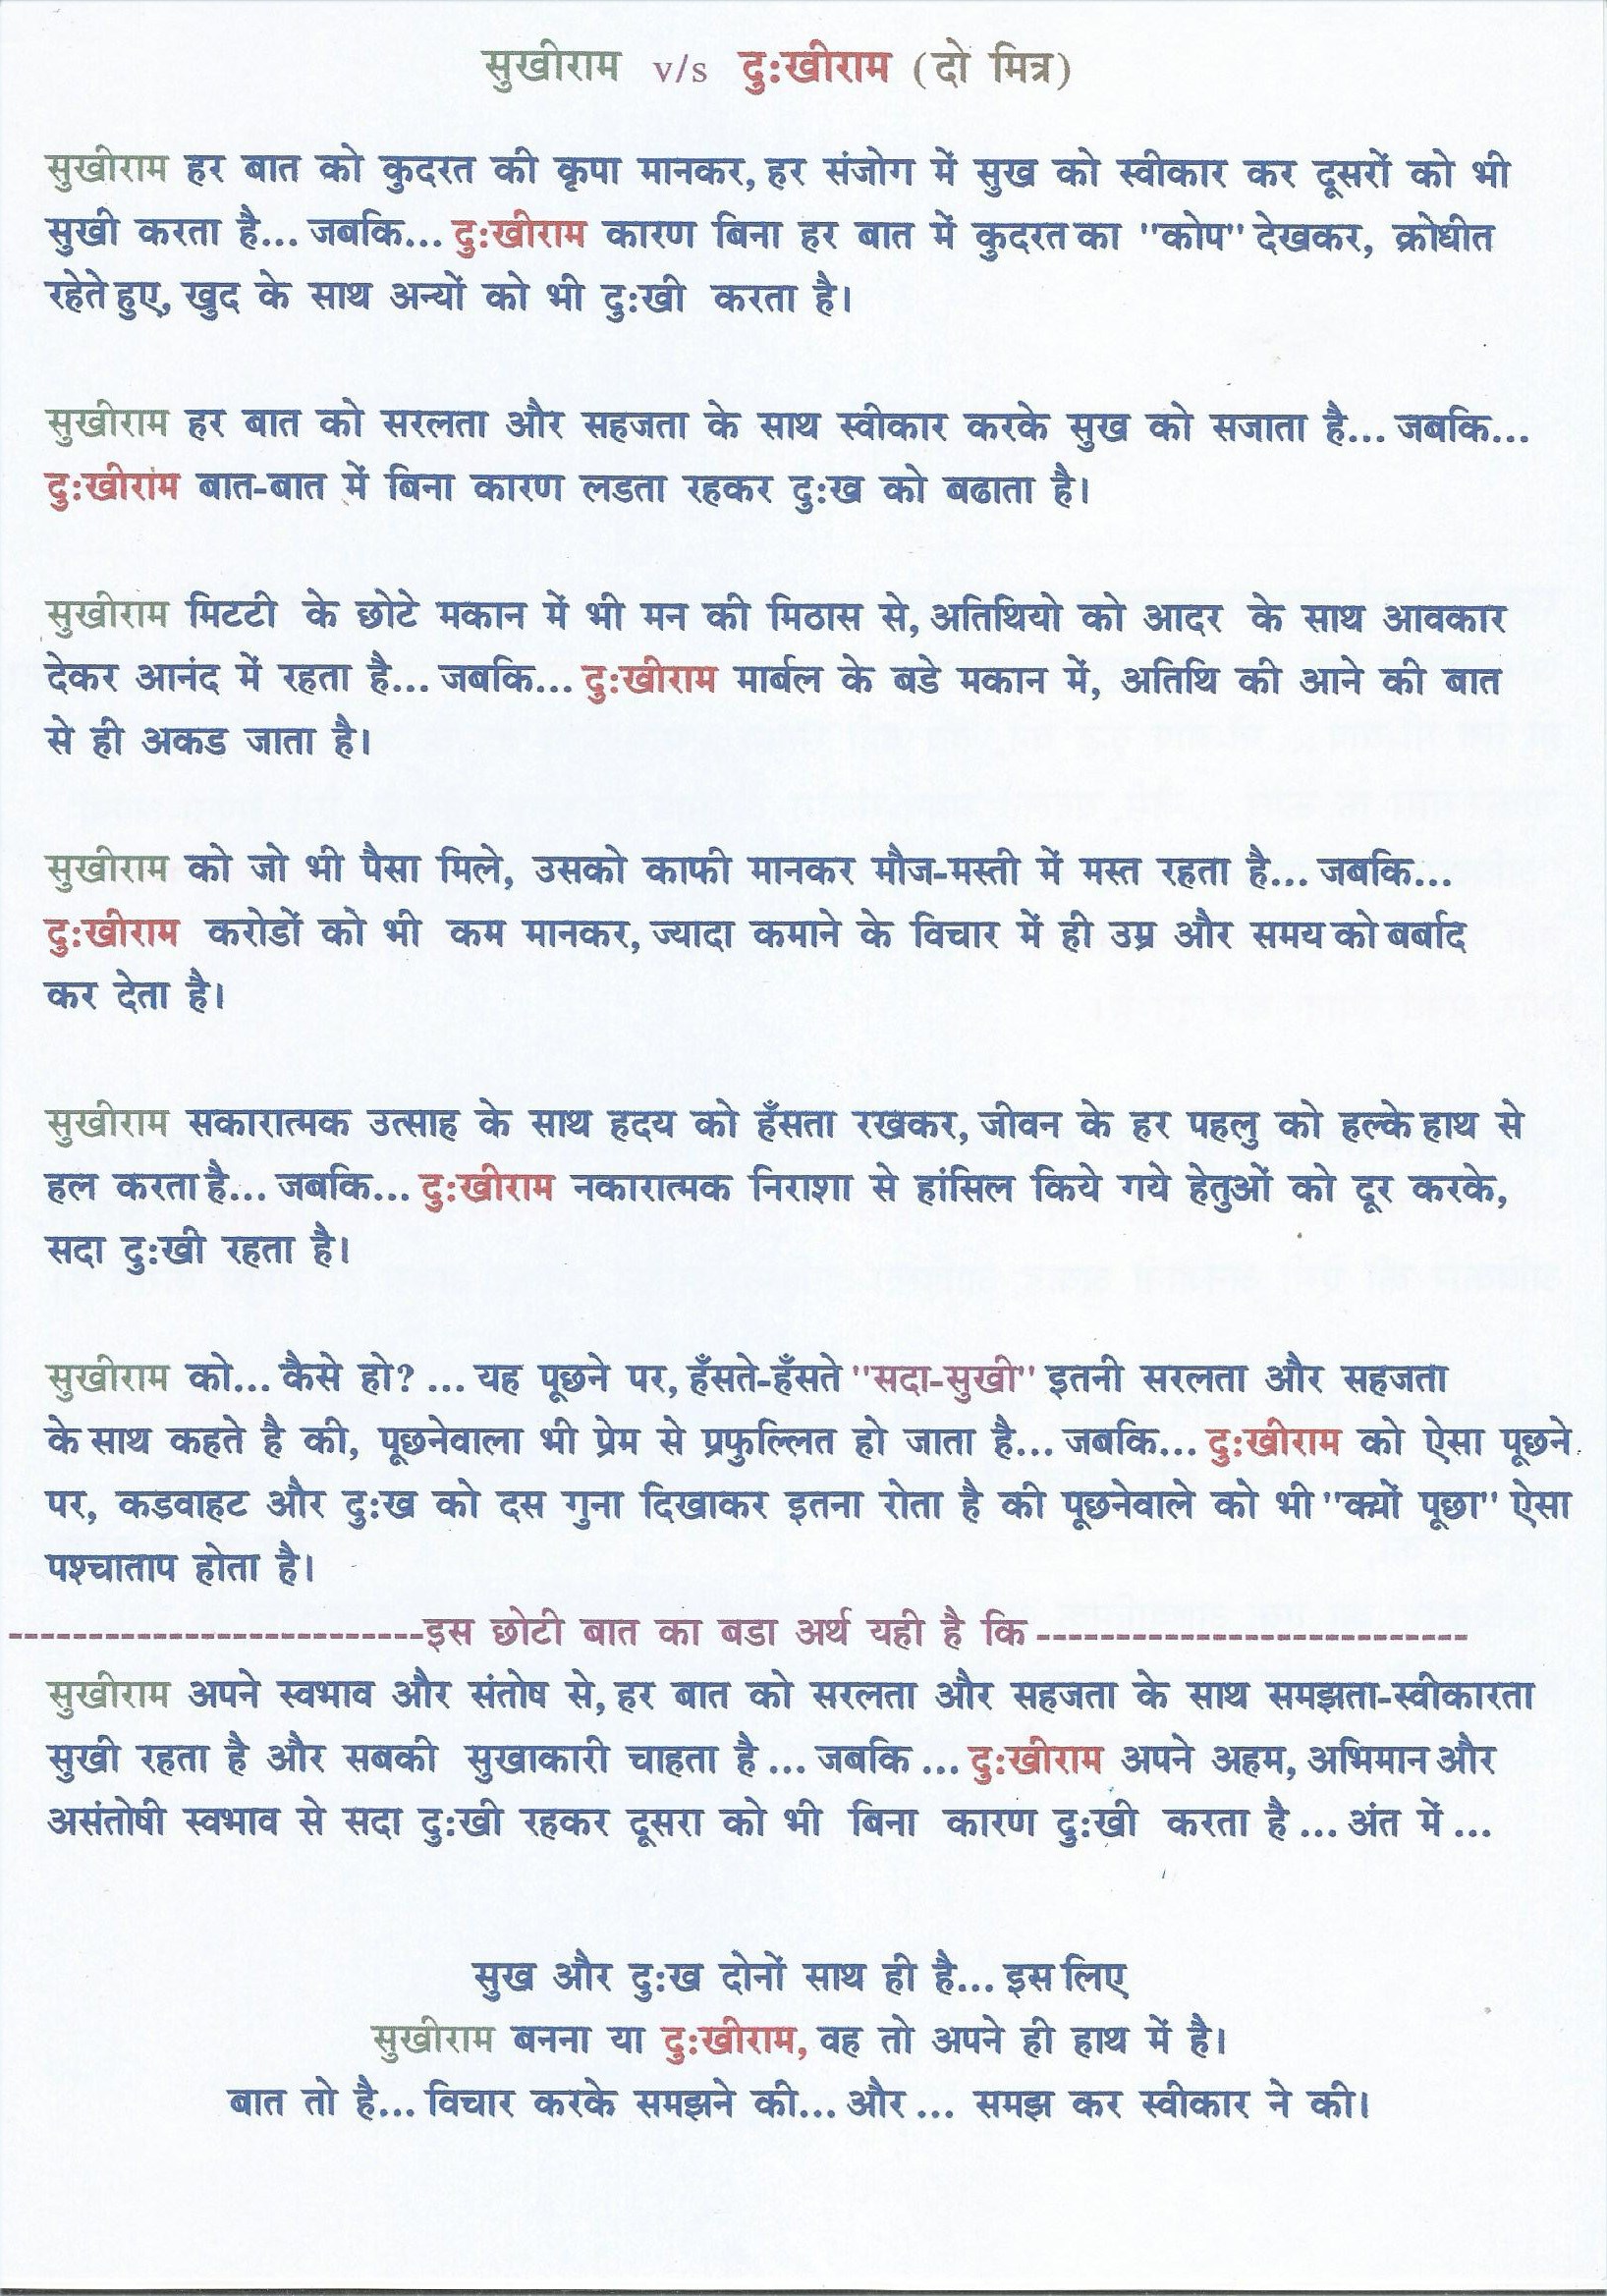 सुखीराम v/s दुःखीराम (दो मित्र)
सुखीराम हर बात को कुदरत की कृपा मानकर, हर संजोग में सुख को स्वीकार कर दूसरों को भी
सुखी करता है... जबकि... दुःखीराम कारण बिना हर बात में कुदरत का "कोप" देखकर, क्रोधीत
रहेते हुए, खुद के साथ अन्यों को भी दुःखी करता है।
सुखीराम हर बात को सरलता और सहजता के साथ स्वीकार करके सुख को सजाता है... जबकि...
दुःखीराम बात-बात में बिना कारण लडता रहकर दुःख को बढाता है।
सुखीराम मिटटी के छोटे मकान में भी मन की मिठास से, अतिथियो को आदर के साथ आवकार
देकर आनंद में रहता है... जबकि... दुःखीराम मार्बल के बडे मकान में, अतिथि की आने की बात
से ही अकड जाता है।
सुखीराम को जो भी पैसा मिले, उसको काफी मानकर मौज-मस्ती में मस्त रहता है... जबकि...
दुःखीराम करोडों को भी कम मानकर, ज्यादा कमाने के विचार में ही उम्र और समय को बर्बाद
कर देता है।
सुखीराम सकारात्मक उत्साह के साथ हदय को हँसता रखकर, जीवन के हर पहलु को हल्के हाथ से
हल करता है... जबकि... दुःखीराम नकारात्मक निराशा से हांसिल किये गये हेतुओं को दूर करके,
सदा दुःखी रहता है।
सुखीराम को... कैसे हो? ... यह पूछने पर, हँसते-हँसते "सदा-सुखी" इतनी सरलता और सहजता
के साथ कहते है की, पूछनेवाला भी प्रेम से प्रफुल्लित हो जाता है... जबकि... दुःखीराम को ऐसा पूछने
पर, कडवाहट और दुःख को दस गुना दिखाकर इतना रोता है की पूछनेवाले को भी "क्यों पूछा" ऐसा
पश्चाताप होता है।
--------------------------इस छोटी बात का बडा अर्थ यही है कि ---------------------------
सुखीराम अपने स्वभाव और संतोष से, हर बात को सरलता और सहजता के साथ समझता-स्वीकारता
सुखी रहता है और सबकी सुखाकारी चाहता है ... जबकि ... दुःखीराम अपने अहम, अभिमान और
असंतोषी स्वभाव से सदा दुःखी रहकर दूसरा को भी बिना कारण दुःखी करता है ... अंत में ...
सुख और दुःख दोनों साथ ही है... इस लिए
सुखीराम बनना या दुःखीराम, वह तो अपने ही हाथ में है।
बात तो है... विचार करके समझने की... और ... समझ कर स्वीकार ने की।